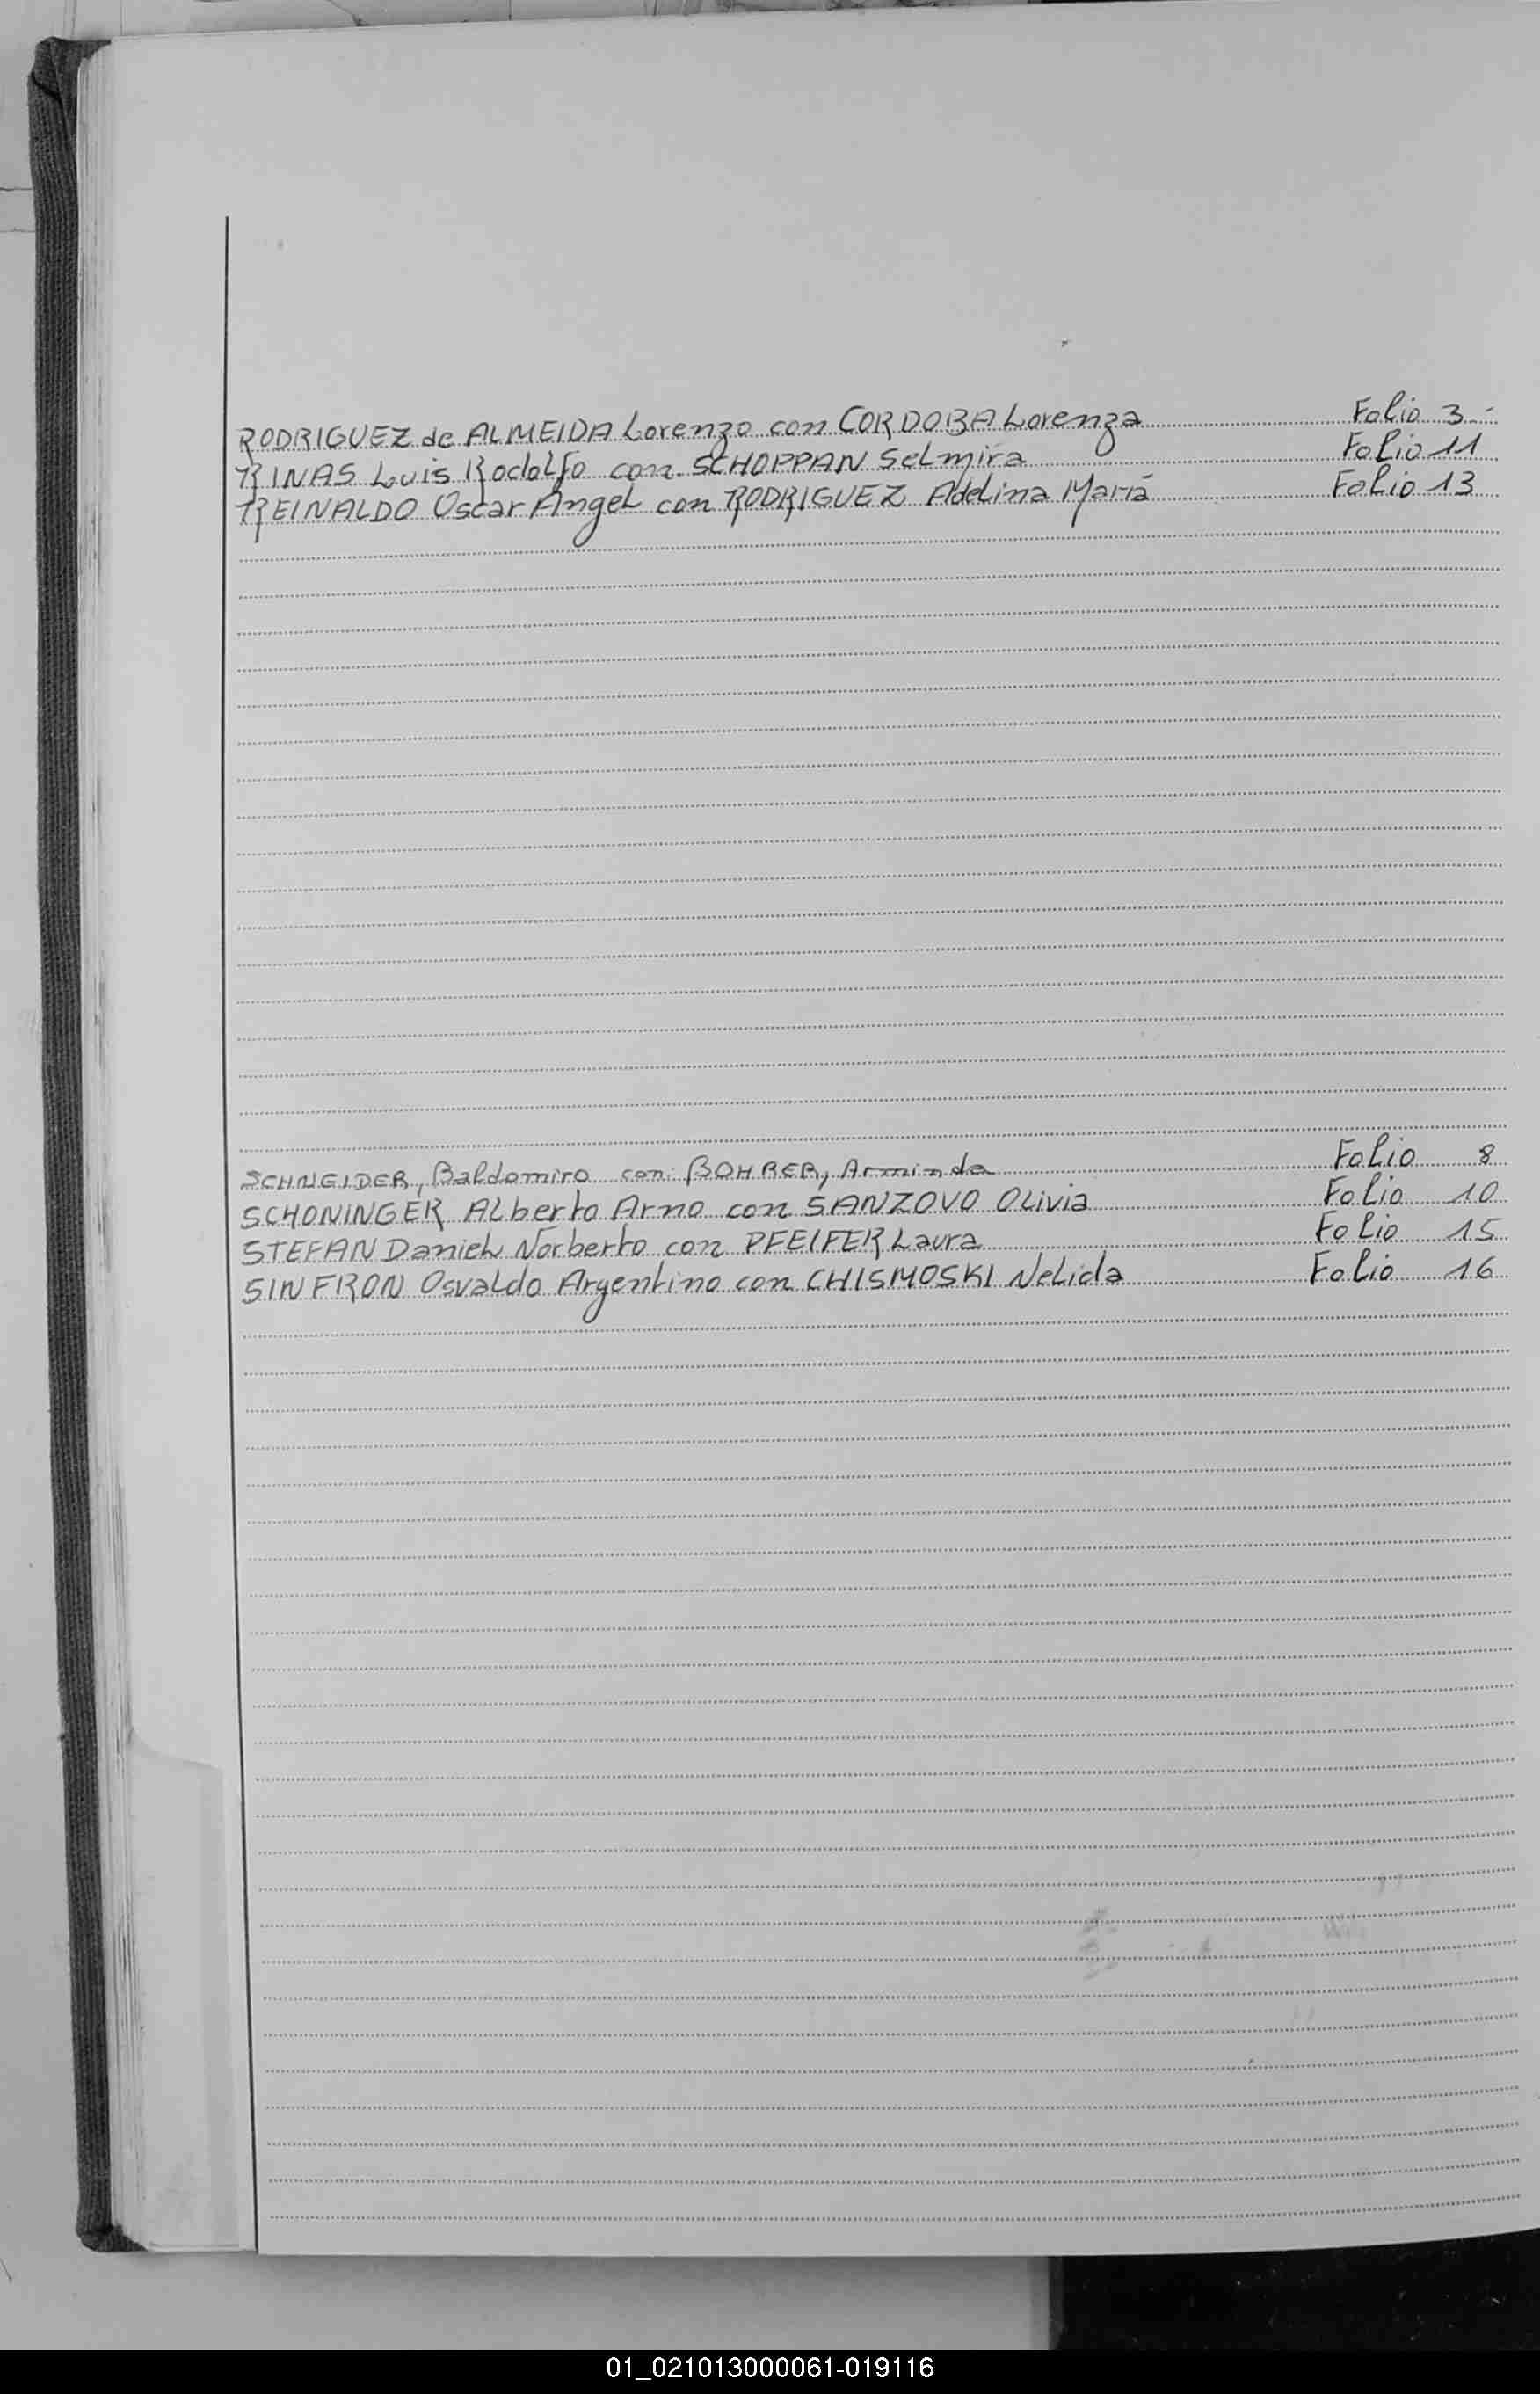 RODRIGUEZ de ALMEIDA Lorenzo con CORDOBA Lorenza Folio 3.-
RINAS Luis Rodolfo con SCHOPPAN Selmira Folio 11
REINALDO Oscar Angel con RODRIGUEZ Adelina María Folio 13
SCHNEIDER, Baldomiro con: BOHRER, Arminda Folio 8
SCHONINGER Alberto Arno con SANZOVO Olivia Folio 10
STEFAN Daniel Norberto con PFEIFER Laura Folio 15
SINFRON Osvaldo Argentino con CHISMOSKI Nelida Folio 16
01_021013000061-019116